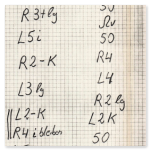 R3+lg
L5i
R2-K
L3lg
L2-K
R4 i bleiben
50
Ωv
50
R4
L4
R2lg
L2K
50